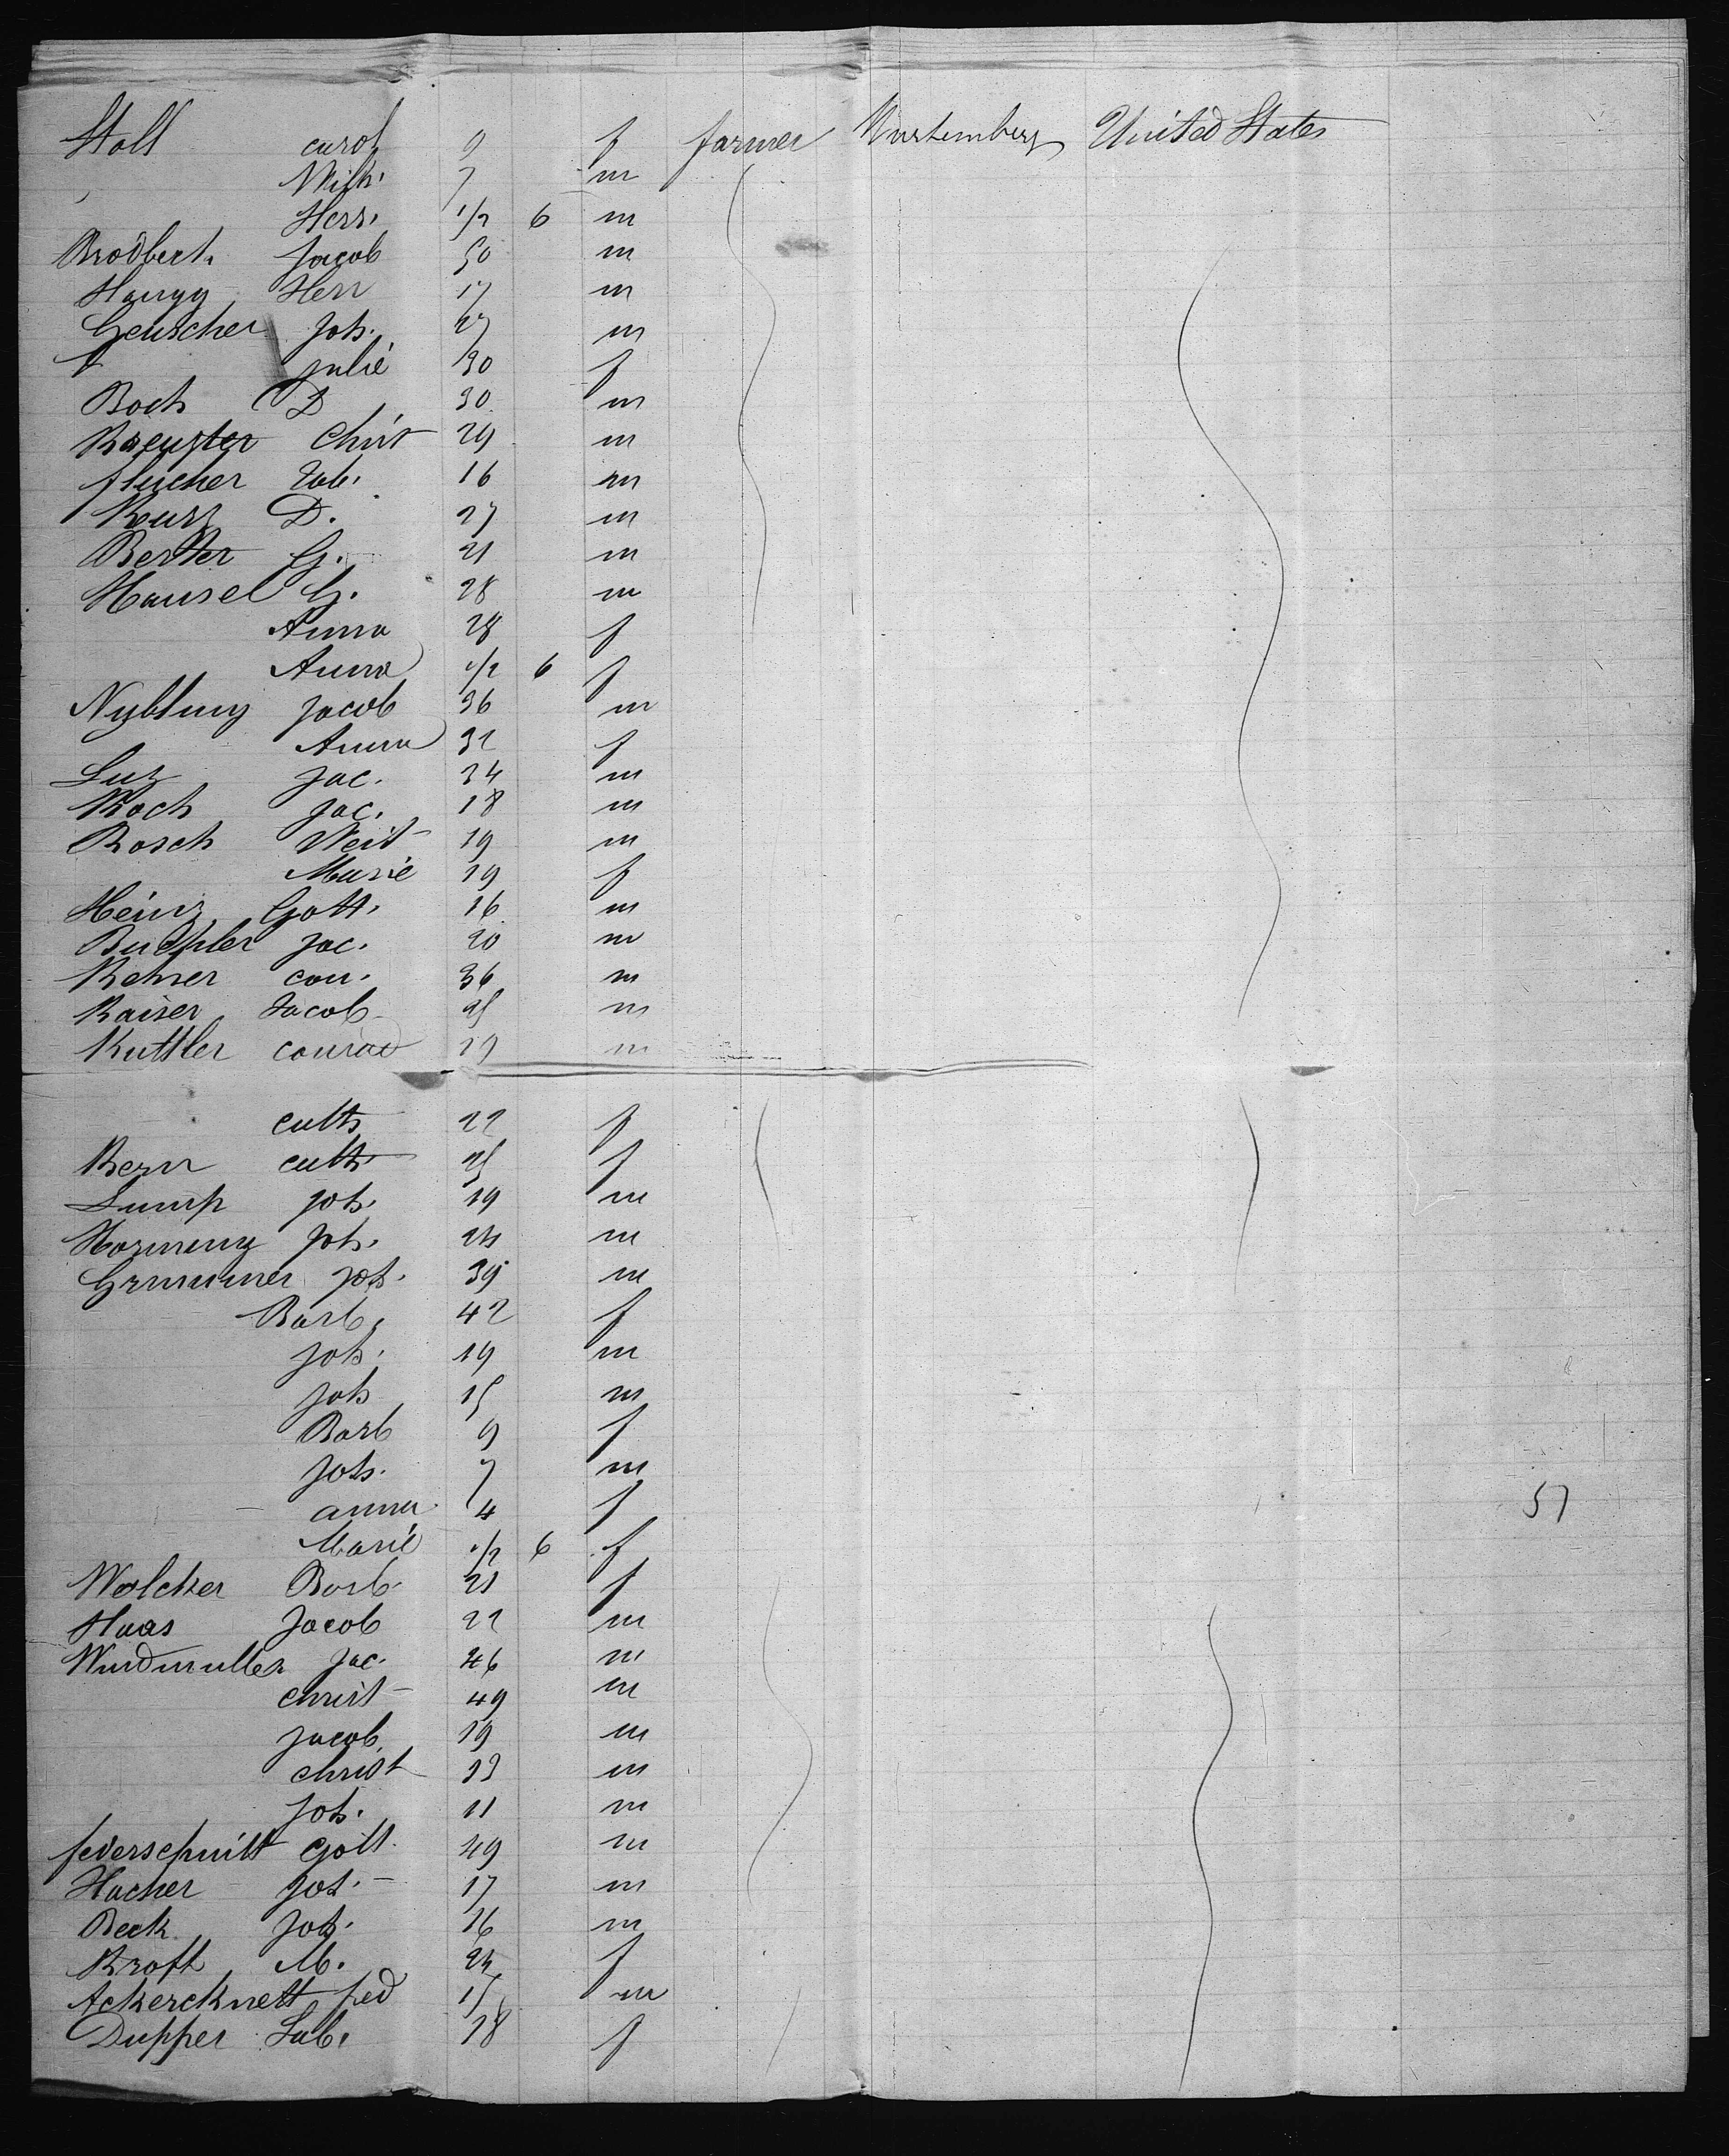 Stoll carol 9 f farmer Wurtemberg United States
Wilh. 7 m
Herr. 1/2 6 m
Brodbeck Jacob 50 m
Haugg Herr 17 m
Genscher Joh. 27 m
Julie 30 f
Boch D 30 m
Christ 29 m
fleischer Tob. 16 m
Kurz D. 27 m
G. 21 m
Hansel G. 28 m
Anna 28 f
Anna 1/2 6 f
Jacob 36 m
Anna 32 f
Luz Jac. 34 m
Koch Jac. 18 m
Bosch Veit 19 m
Marie 19 f
Heinz Gott. 16 m
Buchler Jac. 20 m
Rehrer con. 36 m
Kaiser Jacob 25 m
Kuttler conrad 29 m
cath 22 f
Kern cath 25 f
Lump Joh. 19 m
Hornung Joh. 24 m
Grummer Joh. 39 m
Barb. 42 f
Joh. 19 m
Joh 15 m
Barb 9 f
Joh. 7 m
anna 4 f
57
Marie 1/2 6 f
Welcker Barb. 21 f
Haas Jacob 22 m
Windmuller Jac. 46 m
christ 49 m
Jacob 19 m
christ 13 m
Joh. 11 m
federschmitt Gott. 49 m
Hacker Joh. 17 m
Beck Joh. 16 m
Kraft M. 24 f
Ackerknett fred 15 m
Dupper Sab. 18 f